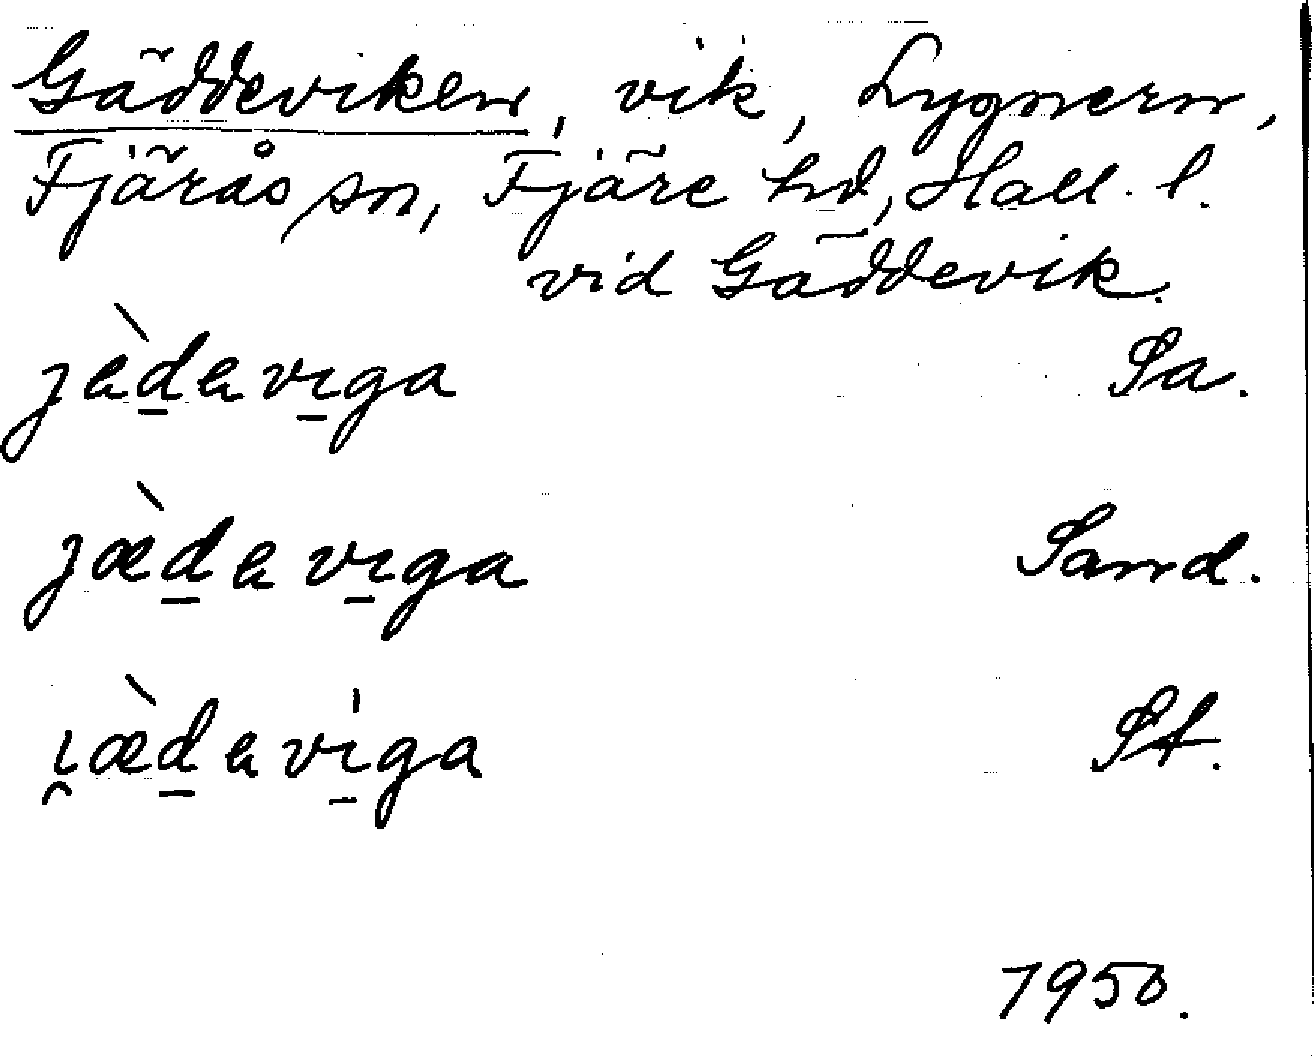 Gäddeviken, vik, Lygnern,
Fjärås sn, Fjäre hd, Hall. l.
vid Gäddevik.
jèd̲evı̲ga Sa.
jæ̀d̲evı̲ga Sand.
ı̯æ̀d̲evı̲̍ga St.
1950.